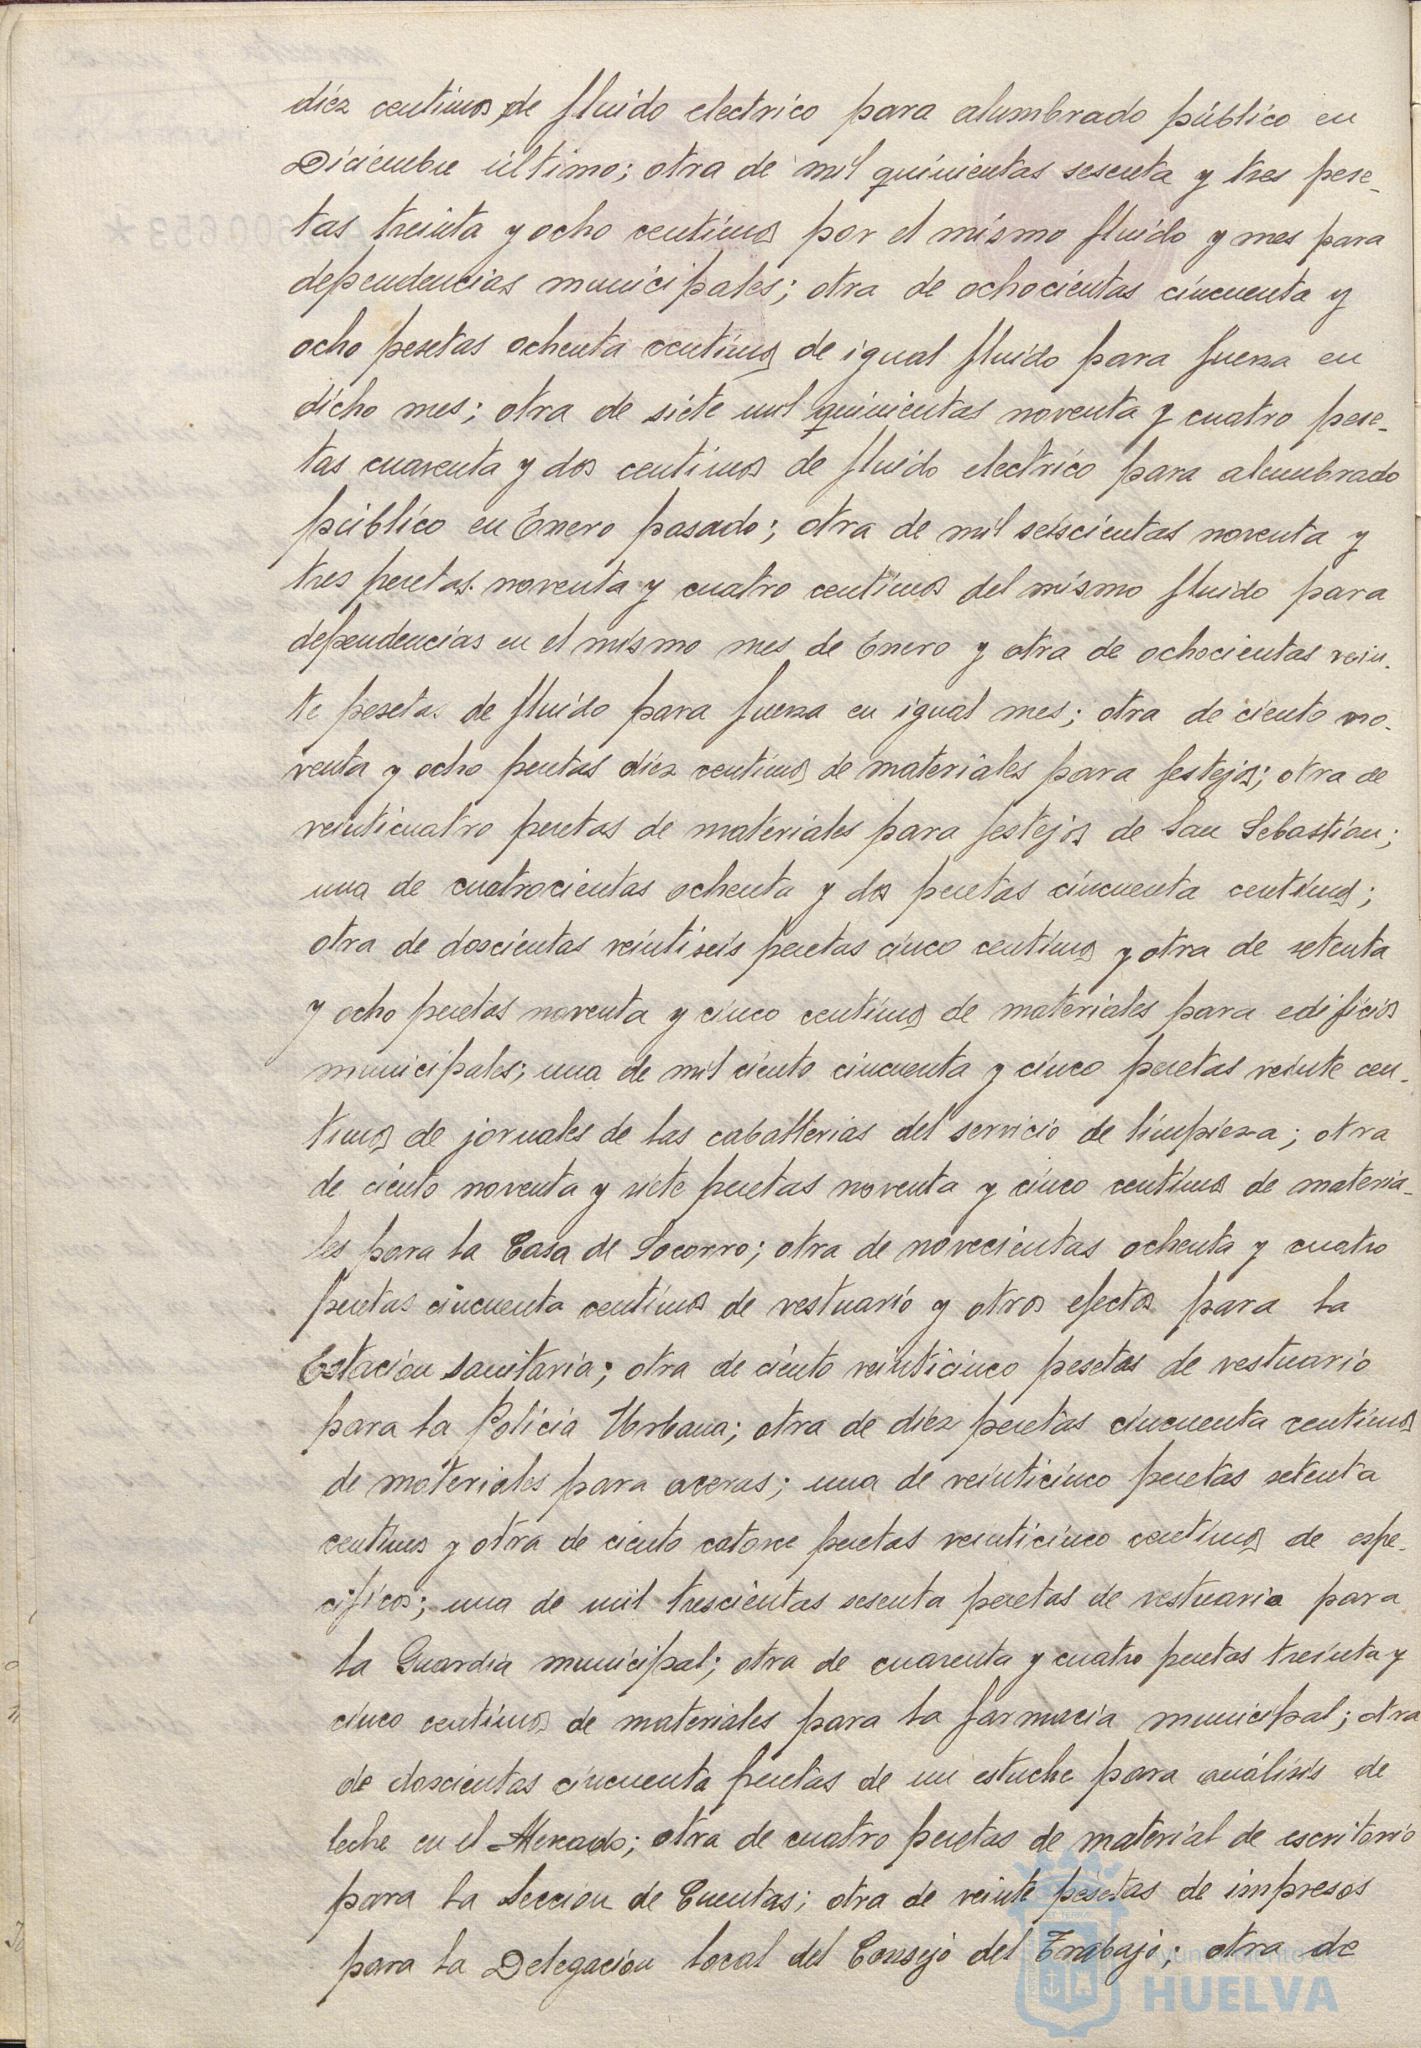 diez centimos de fluido electrico para alumbrado público en
Diciembre último; otra de mil quinientas sesenta y tres pese-
tas treinta y ocho centimos por el mismo fluido y mes para
dependencias municipales; otra de ochocientas cincuenta y
ocho pesetas ochenta centimos de igual fluido para fuerza en
dicho mes; otra de siete mil quinientas noventa y cuatro pese-
tas cuarenta y dos centimos de fluido electrico para alumbrado
público en Enero pasado; otra de mil seiscientas noventa y
tres pesetas noventa y cuatro centimos del mismo fluido para
dependencias en el mismo mes de Enero y otra de ochocientas vein-
te pesetas de fluido para fuerza en igual mes; otra de ciento no-
venta y ocho pesetas diez centimos de materiales para festejos; otra de
veinticuatro pesetas de materiales para festejos de San Sebastián;
una de cuatrocientas ochenta y dos pesetas cincuenta centimos;
otra de doscientas veintiseis pesetas cinco centimos y otra de setenta
y ocho pesetas noventa y cinco centimos de materiales para edificios
municipales; una de mil ciento cincuenta y cinco pesetas veinte cen-
timos de jornales de las caballerias del servicio de limpieza; otra
de ciento noventa y siete pesetas noventa y cinco centimos de materia-
les para la Casa de Socorro; otra de novecientas ochenta y cuatro
pesetas cincuenta centimos de vestuario y otros efectos para la
Estación sanitaria; otra de ciento veinticinco pesetas de vestuario
para la Policia Urbana; otra de diez pesetas cincuenta centimos
de materiales para aceras; una de veinticinco pesetas setenta
centimos y otra de ciento catorce pesetas veinticinco centimos de espe-
cificos; una de mil trescientas sesenta pesetas de vestuario para
la Guardia municipal; otra de cuarenta y cuatro pesetas treinta y
cinco centimos de materiales para la farmacia municipal; otra
de doscientas cincuenta pesetas de un estuche para análisis de
leche en el Mercado; otra de cuatro pesetas de material de escritorio
para la Seccion de Cuentas; otra de veinte pesetas de impresos
para la Delegación local del Consejo del Trabajo; otra de
Ayuntamiento de
HUELVA